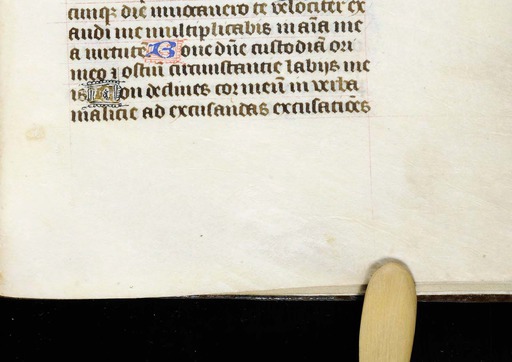 cumqꝫ die inuocauero te velociter ex
audi me multiplicabis in aīa me
a uirtutē Pone dn̄e custodiā ori
meo ⁊ ostiū circumstantie labijs me
is Non declines cor meū in verba
malicie ad excusandas excusatiōes